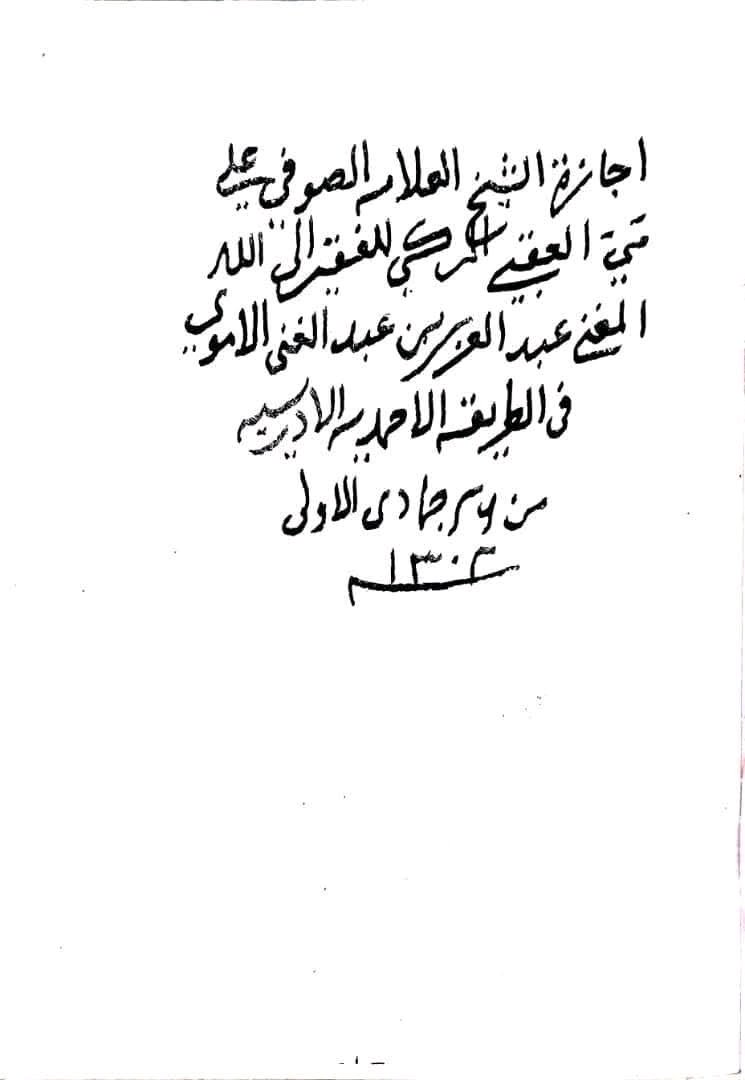 اجازة الشيخ العلامه الصوفي علي
ميّة العقبي الدركي للفقير الى الله
المغني عبد العزيز بن عبد الغني الاموي
في الطريقه الاحمديه الادريسيه
من جمادى الاولى
١٣٠٢
- ١ -